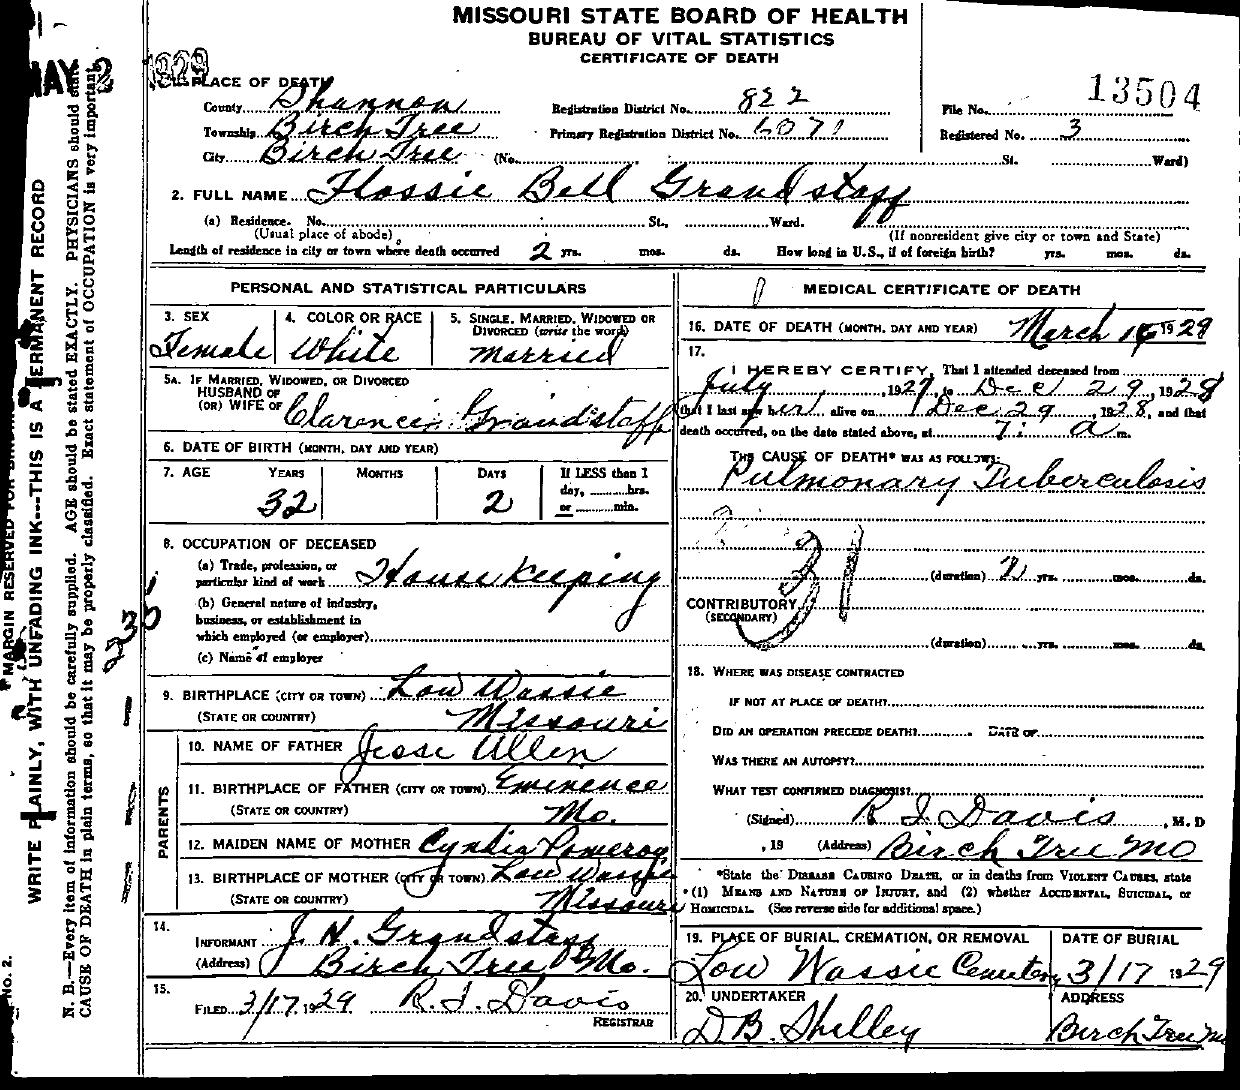 MISSOURI STATE BOARD OF HEALTH
BUREAU OF VITAL STATISTICS
CERTIFICATE OF DEATH
MAY 2 1929
13504
PLACE OF DEATH
County Shannon Registration District No. 822 File No.
Township Birch Tree Primary Registration District No. 6071 Registered No. 3
City Birch Tree (No. St. Ward)
2. FULL NAME Flossie Bell Grandstaff
(a) Residence. No. St., Ward.
(Usual place of abode) (If nonresident give city or town and State)
Length of residence in city or town where death occurred 2 yrs. mos. ds. How long in U.S., if of foreign birth? yrs. mos. ds.
PERSONAL AND STATISTICAL PARTICULARS
3. SEX 4. COLOR OR RACE 5. SINGLE, MARRIED, WIDOWED OR DIVORCED (write the word)
Female White Married
5A. IF MARRIED, WIDOWED, OR DIVORCED
HUSBAND OF
(OR) WIFE OF Clarence Grandstaff
6. DATE OF BIRTH (MONTH, DAY AND YEAR)
7. AGE YEARS MONTHS DAYS If LESS than 1
day, hrs.
or min.
32 2
8. OCCUPATION OF DECEASED
(a) Trade, profession, or
particular kind of work House Keeping
(b) General nature of industry,
business, or establishment in
which employed (or employer)
(c) Name of employer
9. BIRTHPLACE (CITY OR TOWN) Low Wassie
(STATE OR COUNTRY) Missouri
PARENTS
10. NAME OF FATHER Jesse Allen
11. BIRTHPLACE OF FATHER (CITY OR TOWN) Eminence
(STATE OR COUNTRY) Mo.
12. MAIDEN NAME OF MOTHER Cynthia Pomeroy
13. BIRTHPLACE OF MOTHER (CITY OR TOWN) Low Wassie
(STATE OR COUNTRY) Missouri
14.
INFORMANT J. H. Grandstaff
(Address) Birch Tree Mo.
15.
FILED 3/17 1929 R. I. Davis
REGISTRAR
MEDICAL CERTIFICATE OF DEATH
16. DATE OF DEATH (MONTH, DAY AND YEAR) March 1929
17.
I HEREBY CERTIFY, That I attended deceased from
July, 1927, to Dec 29, 1928
that I last saw her alive on Dec 29, 1928, and that
death occurred, on the date stated above, at 7: a m.
THE CAUSE OF DEATH* WAS AS FOLLOWS:
Pulmonary Tuberculosis
31
(duration) 2 yrs. mos. ds.
CONTRIBUTORY
(SECONDARY)
(duration) yrs. mos. ds.
18. WHERE WAS DISEASE CONTRACTED
IF NOT AT PLACE OF DEATH?
DID AN OPERATION PRECEDE DEATH? DATE OF
WAS THERE AN AUTOPSY?
WHAT TEST CONFIRMED DIAGNOSIS?
(Signed) R I Davis, M. D
, 19 (Address) Birch Tree Mo
*State the DISEASE CAUSING DEATH, or in deaths from VIOLENT CAUSES, state
(1) MEANS AND NATURE OF INJURY, and (2) whether ACCIDENTAL, SUICIDAL, or
HOMICIDAL. (See reverse side for additional space.)
19. PLACE OF BURIAL, CREMATION, OR REMOVAL DATE OF BURIAL
Low Wassie Cemetery 3/17 1929
20. UNDERTAKER ADDRESS
D.B. Shelley Birch Tree Mo
MARGIN RESERVED FOR
WRITE PLAINLY, WITH UNFADING INK---THIS IS A PERMANENT RECORD
N. B.—Every item of information should be carefully supplied. AGE should be stated EXACTLY. PHYSICIANS should state
CAUSE OF DEATH in plain terms, so that it may be properly classified. Exact statement of OCCUPATION is very important.
NO. 2.